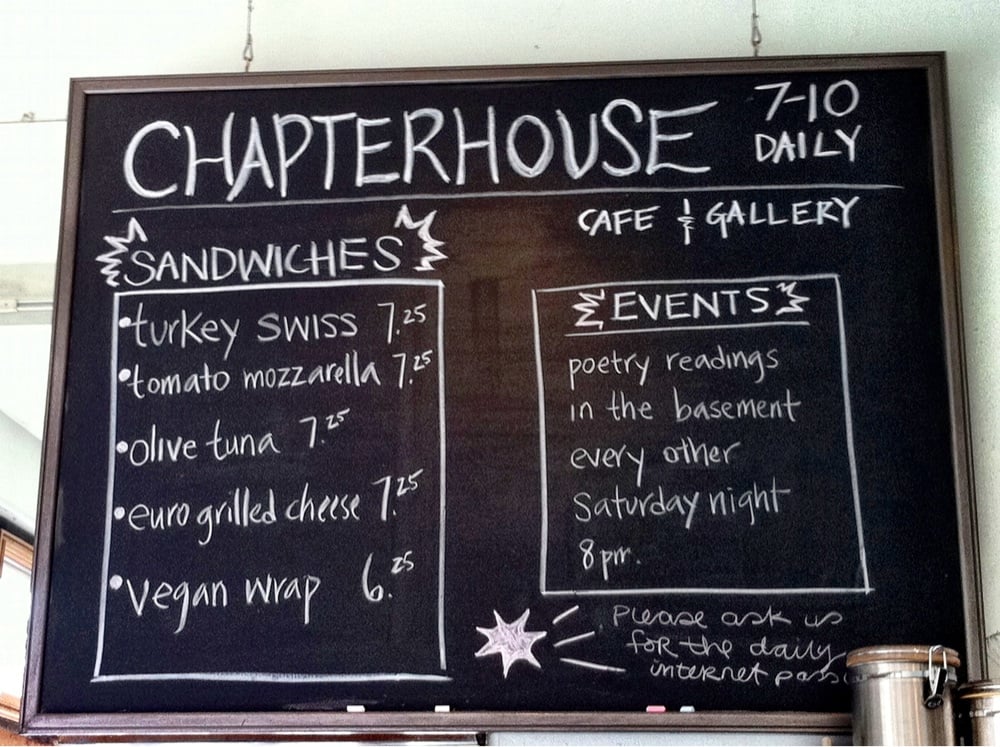 CHAPTERHOUSE
7-10
DAILY
CAFE & GALLERY
SANDWICHES
•turkey SWISS 7.25
•tomato mozzarella 7.25
•olive tuna 7.25
•euro grilled cheese 7.25
•vegan wrap 6.25
EVENTS
poetry readings
in the basement
every other
Saturday night
8pm.
Please ask us
for the daily
internet pass